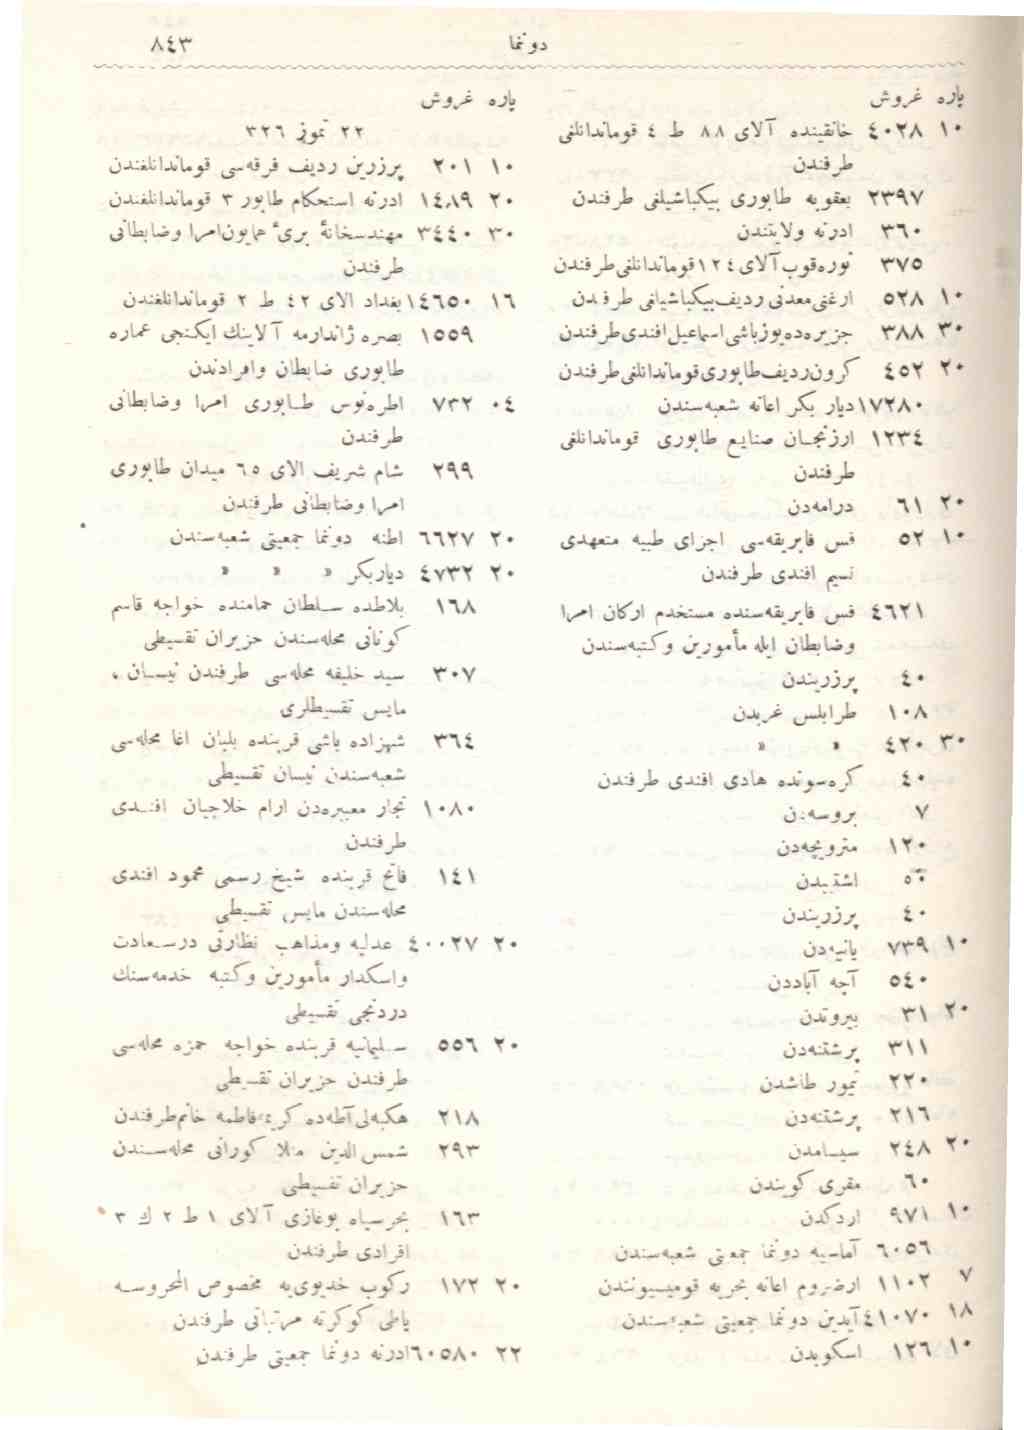 دوﻧﻤﺎ
٨٤٣
پاره غروش
١٠ ٤٠٢٨ خانقینده آلای ٨٨ ط ٤ قوماندانلغی
طرفندن
٢٣٩٧ بعقوبه طابوری بیکباشیلغی طرفندن
٣٦٠ ادرنه ولایتندن
٣٧٥ نوره‌قوب آلای ١٢٤ قوماندانلغی طرفندن
١٠ ٥٢٨ ارغنی معدنی ردیف بیکباشیلغی طرفندن
٣٠ ٣٨٨ جزیره‌ده یوزباشی اسماعیل افندی طرفندن
٢٠ ٤٥٢ کرون ردیف طابوری قوماندانلغی طرفندن
١٧٢٨٠ دیار بکر اعانه شعبه‌سندن
١٢٣٤ ارزنجان صنایع طابوری قوماندانلغی
طرفندن
٢٠ ٦١ درامه‌دن
١٠ ٥٢ فس فابریقه‌سی اجزای طبیه متعهدی
نسیم افندی طرفندن
٤٦٢١ فس فابریقه‌سنده مستخدم ارکان امرا
وضابطان ایله مأمورین وکتبه‌سندن
٤٠ پرزریندن
١٠٨ طرابلس غربدن
٣٠ ٤٢٠ » »
٤٠ کره‌سونده هادی افندی طرفندن
٧ بروسه‌دن
١٢٠ متروویچه‌دن
٥٠ اشتیبدن
٤٠ پرزریندن
١٠ ٧٣٩ یانیه‌دن
٥٤٠ آچه آباددن
٢٠ ٣١ بیروتدن
٣١١ پرشتنه‌دن
٢٢٠ تمور طاشدن
٢١٦ پرشتنه‌دن
٢٠ ٢٤٨ سیسامدن
٦٠ مقری کویندن
١٠ ٩٧١ اردکدن
٦٠٥٦ آماسیه دونما جمعیتی شعبه‌سندن
٧ ١١٠٢ ارضروم اعانه بحریه قومیسیونندن
١٨ ٤١٠٧٠ آیدین دونما جمعیتی شعبه‌سندن
١٠ ١٢٦ اسکوبدن
پاره غروش
٢٢ تموز ٣٢٦
١٠ ٢٠١ پرزرین ردیف فرقه‌سی قوماندانلغندن
٢٠ ١٤٨٩ ادرنه استحکام طابور ٣ قوماندانلغندن
٣٠ ٣٤٤٠ مهندسخانهٔ بریٔ همایون امرا وضابطانی
طرفندن
١٦ ١٤٦٥٠ بغداد الای ٤٢ ط ٢ قوماندانلغندن
١٥٥٩ بصره ژاندارمه آلاینك ایکنجی عماره
طابوری ضابطان وافرادندن
٠٤ ٧٣٢ اطره‌نوس طابوری امرا وضابطانی
طرفندن
٢٩٩ شام شریف الای ٦٥ میدان طابوری
امرا وضابطانی طرفندن
٢٠ ٦٦٢٧ اطنه دونما جمعیتی شعبه‌سندن
٢٠ ٤٧٣٢ دیاربکر » » »
١٦٨ بلاطده سلطان حمامنده خواجه قاسم
کونانی محله‌سندن حزیران تقسیطی
٣٠٧ سید خلیفه محله‌سی طرفندن نیسان ،
مایس تقسیطلری
٣٦٤ شهزاده باشی قربنده بلبان اغا محله‌سی
شعبه‌سندن نیسان تقسیطی
١٠٨٠ تجار معتبره‌دن ارام خلاجیان افندی
طرفندن
١٤١ فاتح قربنده شیخ رسمی محمود افندی
محله‌سندن مایس تقسیطی
٢٠ ٤٠٠٢٧ عدلیه ومذاهب نظارتی درسعادت
واسکدار مأمورین وکتبه خدمه‌سنك
دردنجی تقسیطی
٢٠ ٥٥٦ سلیمانیه قربنده خواجه حمزه محله‌سی
طرفندن حزیران تقسیطی
٢١٨ هکبه‌لی آطه‌ده کریمه فاطمه خانم طرفندن
٢٩٣ شمس الدین منلا کورانی محله‌سندن
حزیران تقسیطی
١٦٣ بحرسیاه بوغازی آلای ١ ط ٢ ك ٣
افرادی طرفندن
٢٠ ١٧٢ رکوب خدیوی‌یه مخصوص المحروسه
یاطی کوکرته مرتباتی طرفندن
٢٢ ٦٠٥٨٠ ادرنه دونما جمعیتی طرفندن